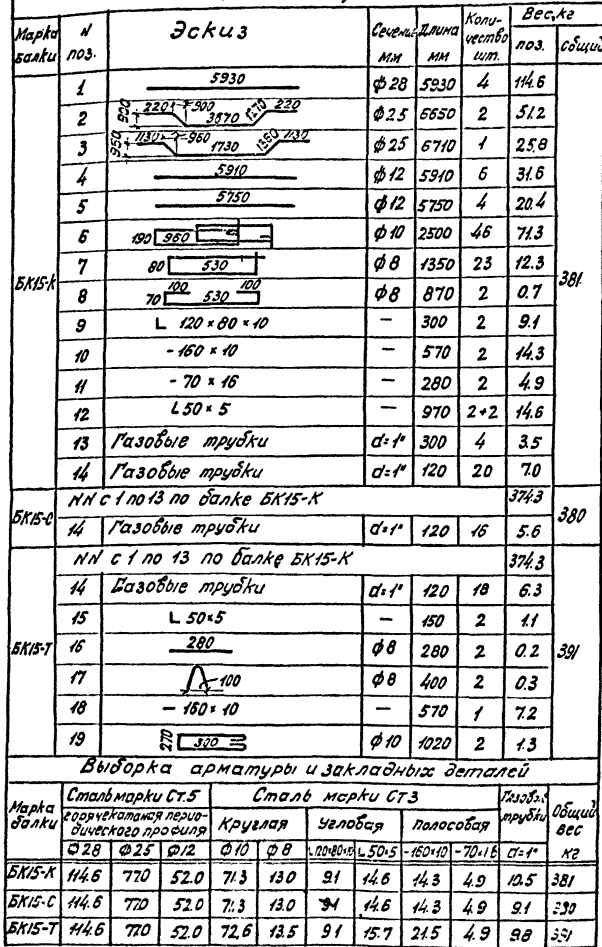 Марка балки N поз. Эскиз Сечение мм Длина мм Количество шт. Вес, кг
поз. общий
БК15-К 1 5930 ϕ28 5930 4 114.6 381
2 900 2201 900 3670 1270 220 ϕ25 6650 2 51.2
3 950 1130 960 1730 1350 1130 ϕ25 6710 1 25.8
4 5910 ϕ12 5910 6 31.6
5 5750 ϕ12 5750 4 20.4
6 190 960 ϕ10 2500 46 71.3
7 80 530 ϕ8 1350 23 12.3
8 100 100 70 530 ϕ8 870 2 0.7
9 L 120×80×10 — 300 2 9.1
10 - 160 × 10 — 570 2 14.3
11 - 70 × 16 — 280 2 4.9
12 L50×5 — 970 2+2 14.6
13 Газовые трубки d=1" 300 4 3.5
14 Газовые трубки d=1" 120 20 7.0
БК15-С NN с 1 по 13 по балке БК15-К 374.3 380
14 Газовые трубки d=1" 120 16 5.6
БК15-Т NN с 1 по 13 по балке БК15-К 374.3 391
14 Газовые трубки d=1" 120 18 6.3
15 L 50×5 — 150 2 1.1
16 280 ϕ8 280 2 0.2
17 100 ϕ8 400 2 0.3
18 - 160 × 10 — 570 1 7.2
19 270 300 ϕ10 1020 2 1.3
Выборка арматуры и закладных деталей
Марка балки Сталь марки Ст.5 Сталь марки Ст3 Газовые трубки Общий вес кг
горячекатаная периодического профиля Круглая Угловая Полосовая
Ф28 Ф25 Ф12 Ф10 Ф8 L120×80×10 L50×5 -160×10 -70×16 d=1"
БК15-К 114.6 77.0 52.0 71.3 13.0 9.1 14.6 14.3 4.9 10.5 381
БК15-С 114.6 77.0 52.0 71.3 13.0 9.1 14.6 14.3 4.9 9.1 380
БК15-Т 114.6 77.0 52.0 72.6 13.5 9.1 15.7 21.5 4.9 9.8 391